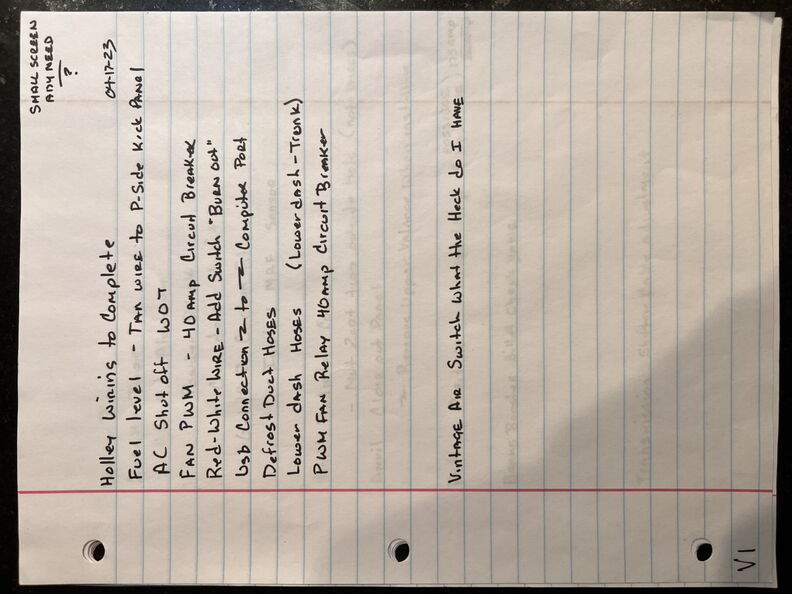 SMALL SCREEN
ANY NEED
?
04-17-23
Holley Wiring to Complete
Fuel level - TAN WIRE to P-Side Kick PANEl
AC Shutoff WOT
FAN PWM - 40 AMP Circuit BREAKER
Red-White WIRE - Add Switch "BURN Out"
Usb Connection 2 to 2 Computer PORT
Defrost Duct HOSES
Lower dash HOSES (Lower dash - Trunk)
PWM FAN Relay 40 AMP Circuit Breaker
VINTAGE AIR Switch What the Heck do I HAVE
V1